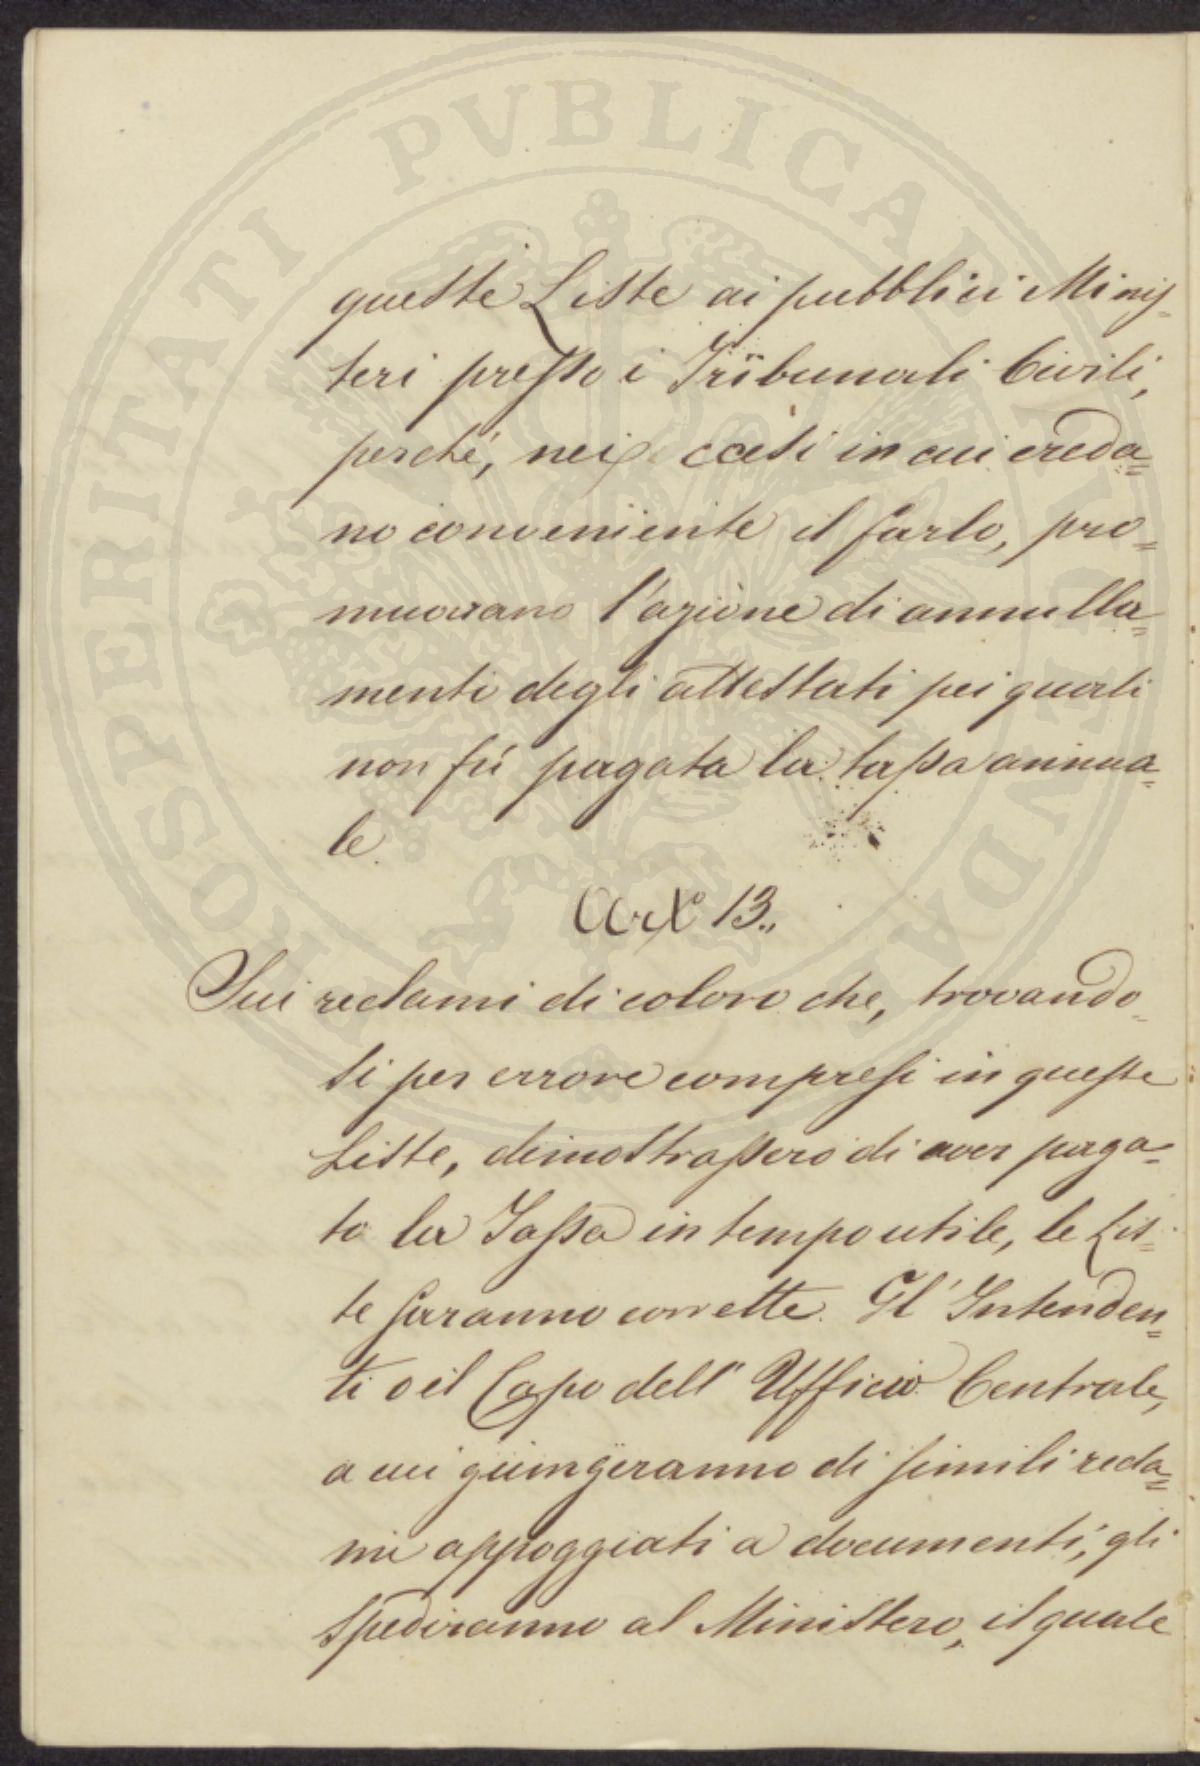 PROSPERITATI PVBLICAE AVGENDAE
queste Liste ai pubblici Minis=
teri presso i Tribunali Civili,
perché, nei casi in cui creda=
no conveniente il farlo, pro=
muovano l'azione di annulla=
menti degli attestati pei quali
non fú pagata la tassa annua=
le.
Art. 13.
Sui reclami di coloro che, trovando=
si per errore compresi in queste
Liste, dimostrassero di aver paga=
to la Tassa in tempo utile, le Lis=
te saranno corrette. Gl' Intenden=
ti o il Capo dell' Ufficio Centrale,
a cui giungeranno di simili recla=
mi appoggiati a documenti, gli
spediranno al Ministero, il quale